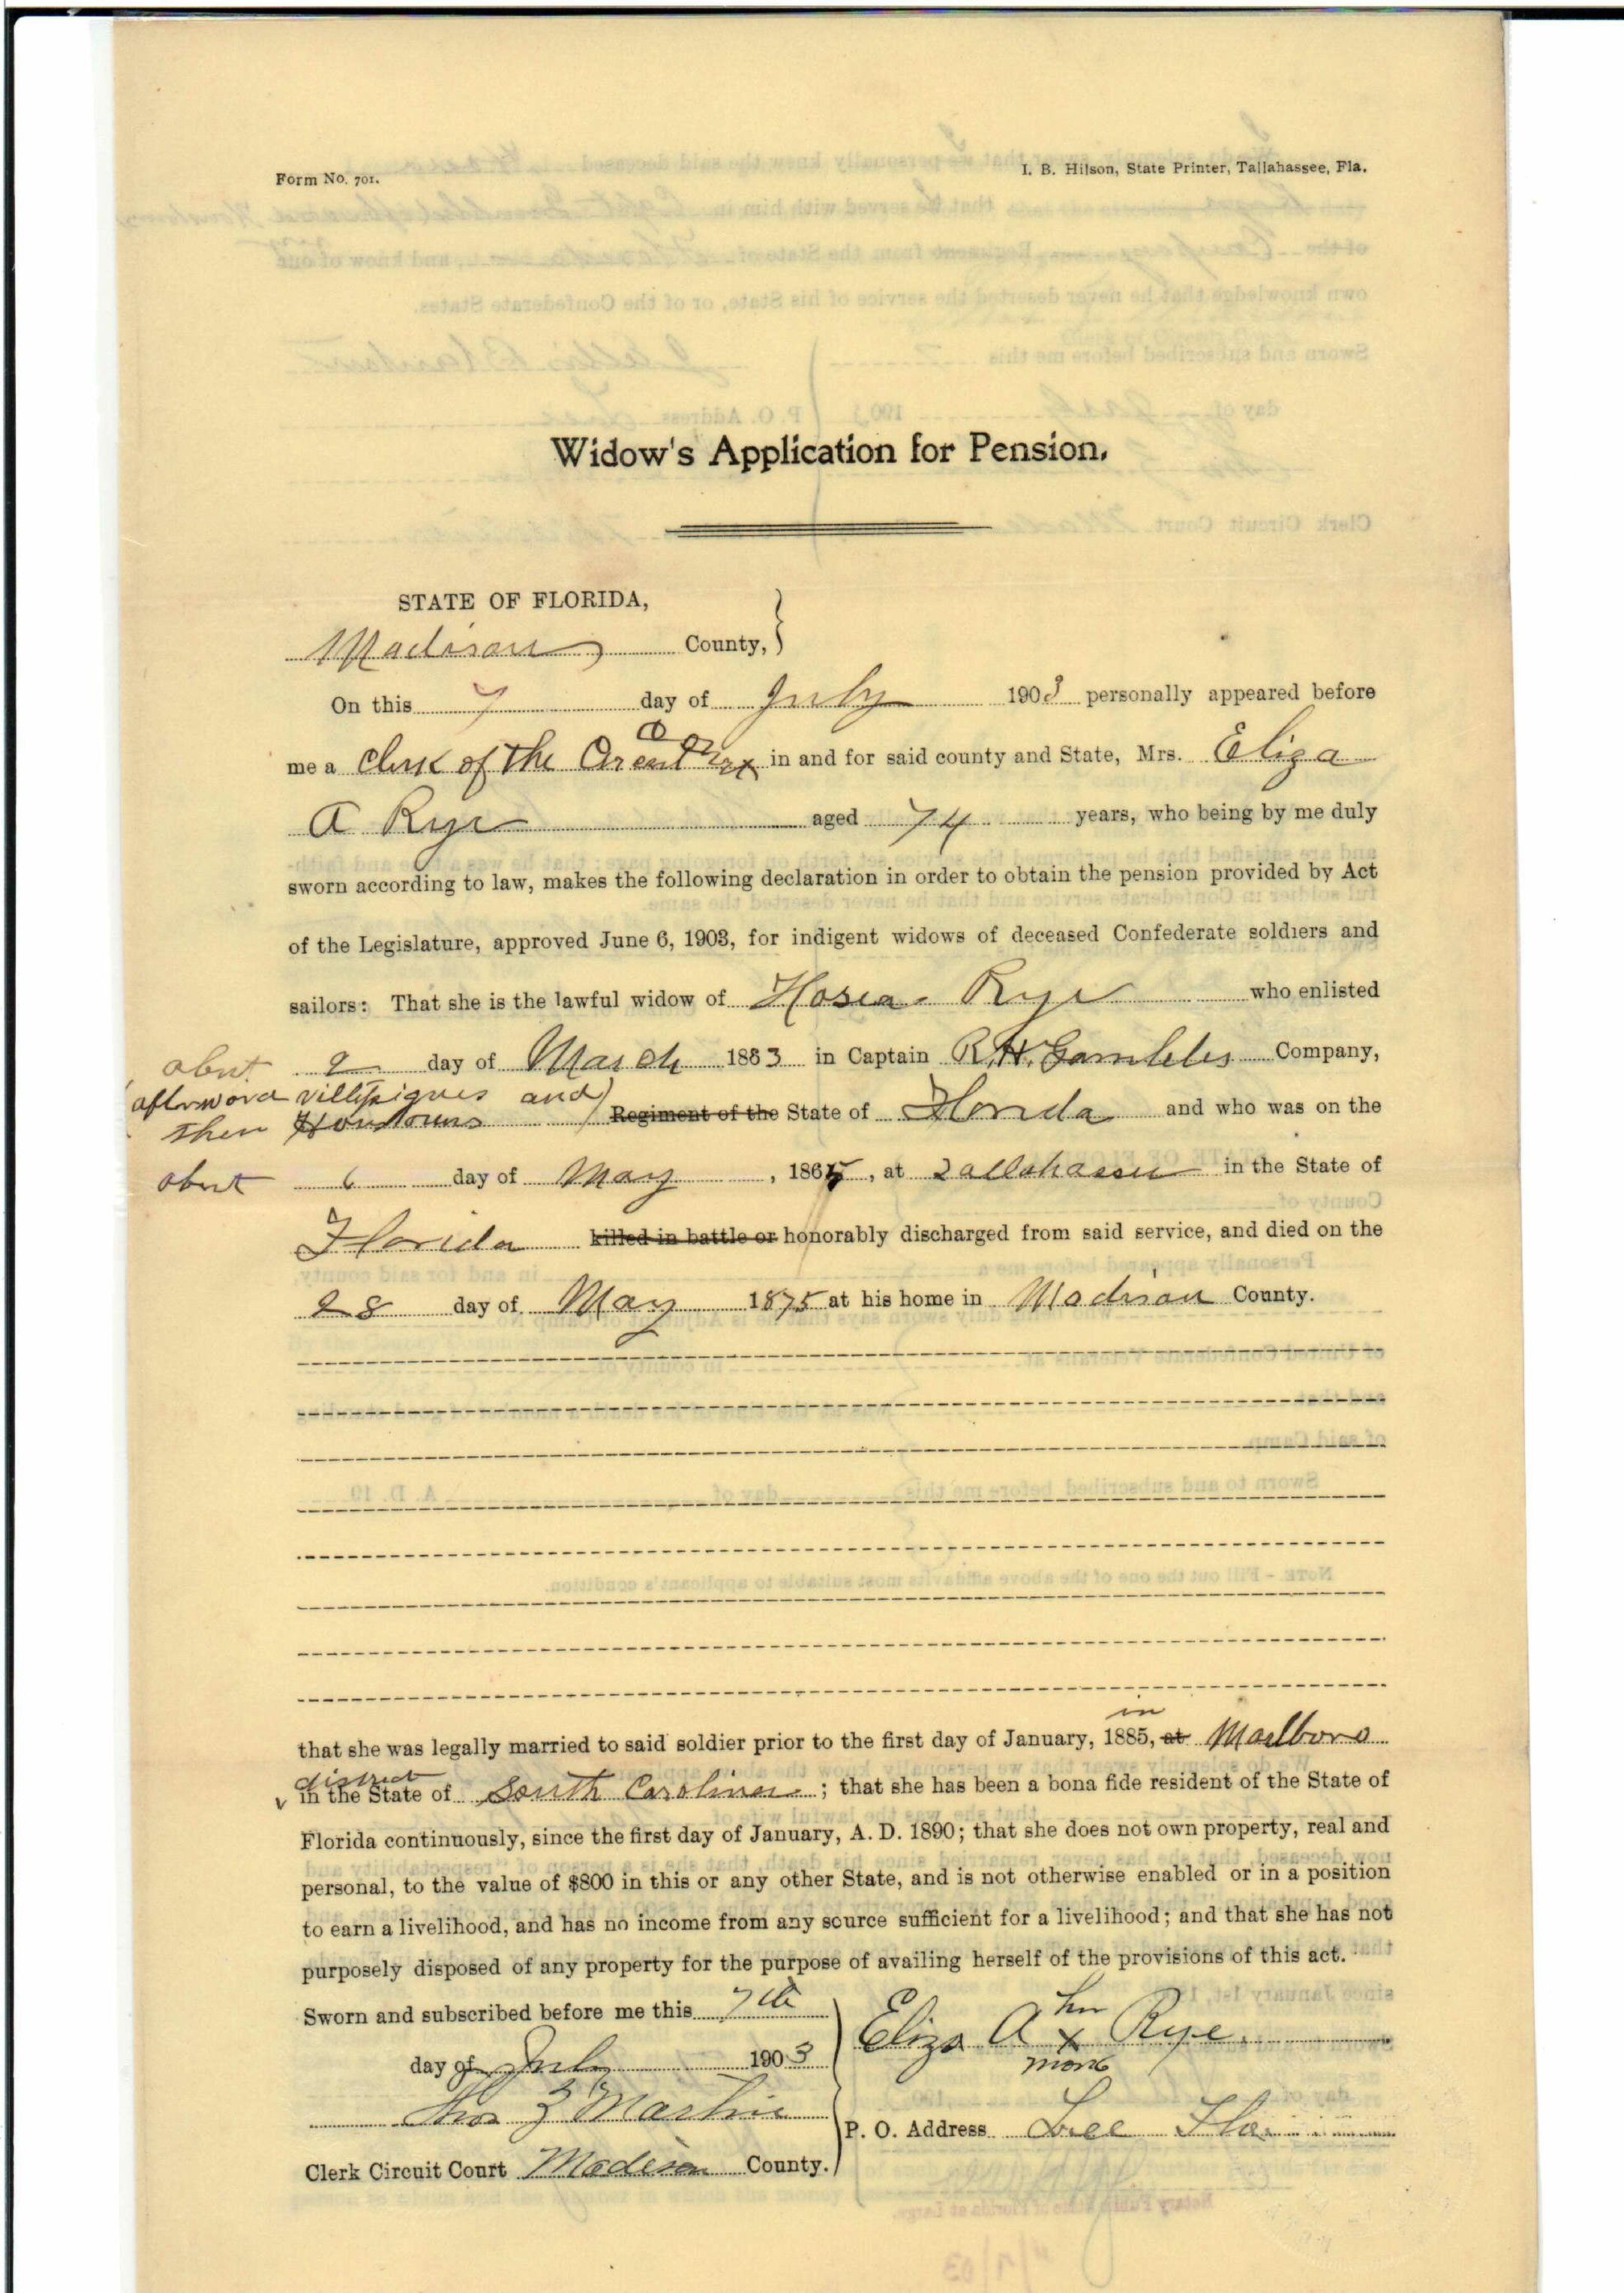 Form No. 701.
I. B. Hilson, State Printer, Tallahassee, Fla.
Widow's Application for Pension.
STATE OF FLORIDA,
Madison County,
On this 7 day of July 1903 personally appeared before
me a Clerk of the Circuit Court in and for said county and State, Mrs. Eliza
A Rye aged 74 years, who being by me duly
sworn according to law, makes the following declaration in order to obtain the pension provided by Act
of the Legislature, approved June 6, 1903, for indigent widows of deceased Confederate soldiers and
sailors: That she is the lawful widow of Hosea Rye who enlisted
about 2 day of March 1863 in Captain R.H. Gambles Company,
(afterword villipigues and)
then Houstouns Regiment of the State of Florida and who was on the
about 6 day of May, 1865, at Tallahassee in the State of
Florida killed in battle or honorably discharged from said service, and died on the
28 day of May 1875 at his home in Madison County.
in
that she was legally married to said soldier prior to the first day of January, 1885, at Marlboro
district
in the State of South Carolina; that she has been a bona fide resident of the State of
Florida continuously, since the first day of January, A. D. 1890; that she does not own property, real and
personal, to the value of $800 in this or any other State, and is not otherwise enabled or in a position
to earn a livelihood, and has no income from any source sufficient for a livelihood; and that she has not
purposely disposed of any property for the purpose of availing herself of the provisions of this act.
Sworn and subscribed before me this 7th
day of July 1903
Martin
Clerk Circuit Court Madison County.
her
Eliza A x Rye
mark
P. O. Address Lee Fla